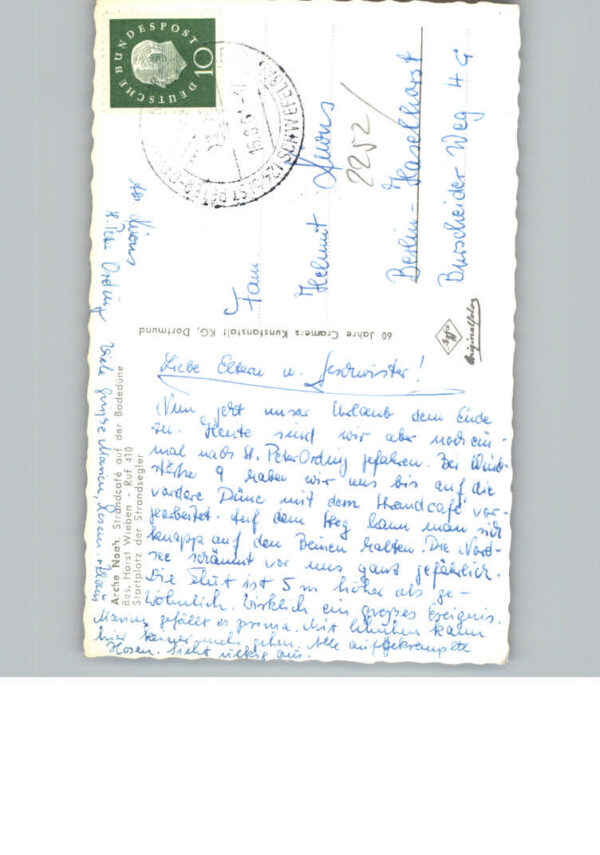 DEUTSCHE BUNDESPOST
10
Fam.
Helmut
2252/
Berlin-Haselhorst
Burscheider Weg 4G
Agfa
Originalfoto
60 Jahre Cramers Kunstanstalt KG, Dortmund
Arche Noah, Strandcafé auf der Badedüne
Bes. Horst Wieben - Ruf 410
Startplatz der Strandsegler
Liebe Eltern u. Geschwister!
Nun jetzt unser Urlaub dem Ende
zu. Heute sind wir aber noch ein-
mal nach St. Peter Ording gefahren. Bei Wind-
stärke 9 haben wir uns bis auf die
vordere Düne mit dem Strandcafé vor-
gearbeitet. Auf dem Weg kann man sich
knapp auf den Beinen halten. Die Nord-
see schäumt vor uns ganz gefährlich.
Die Flut ist 5 m höher als ge-
wöhnlich. Wirklich ein großes Ereignis.
gefällt es prima. Mit Schuhen kann
hier keiner mehr gehen. Alle aufgekrempelte
Hosen. Sieht ulkig aus.
Viele Grüße